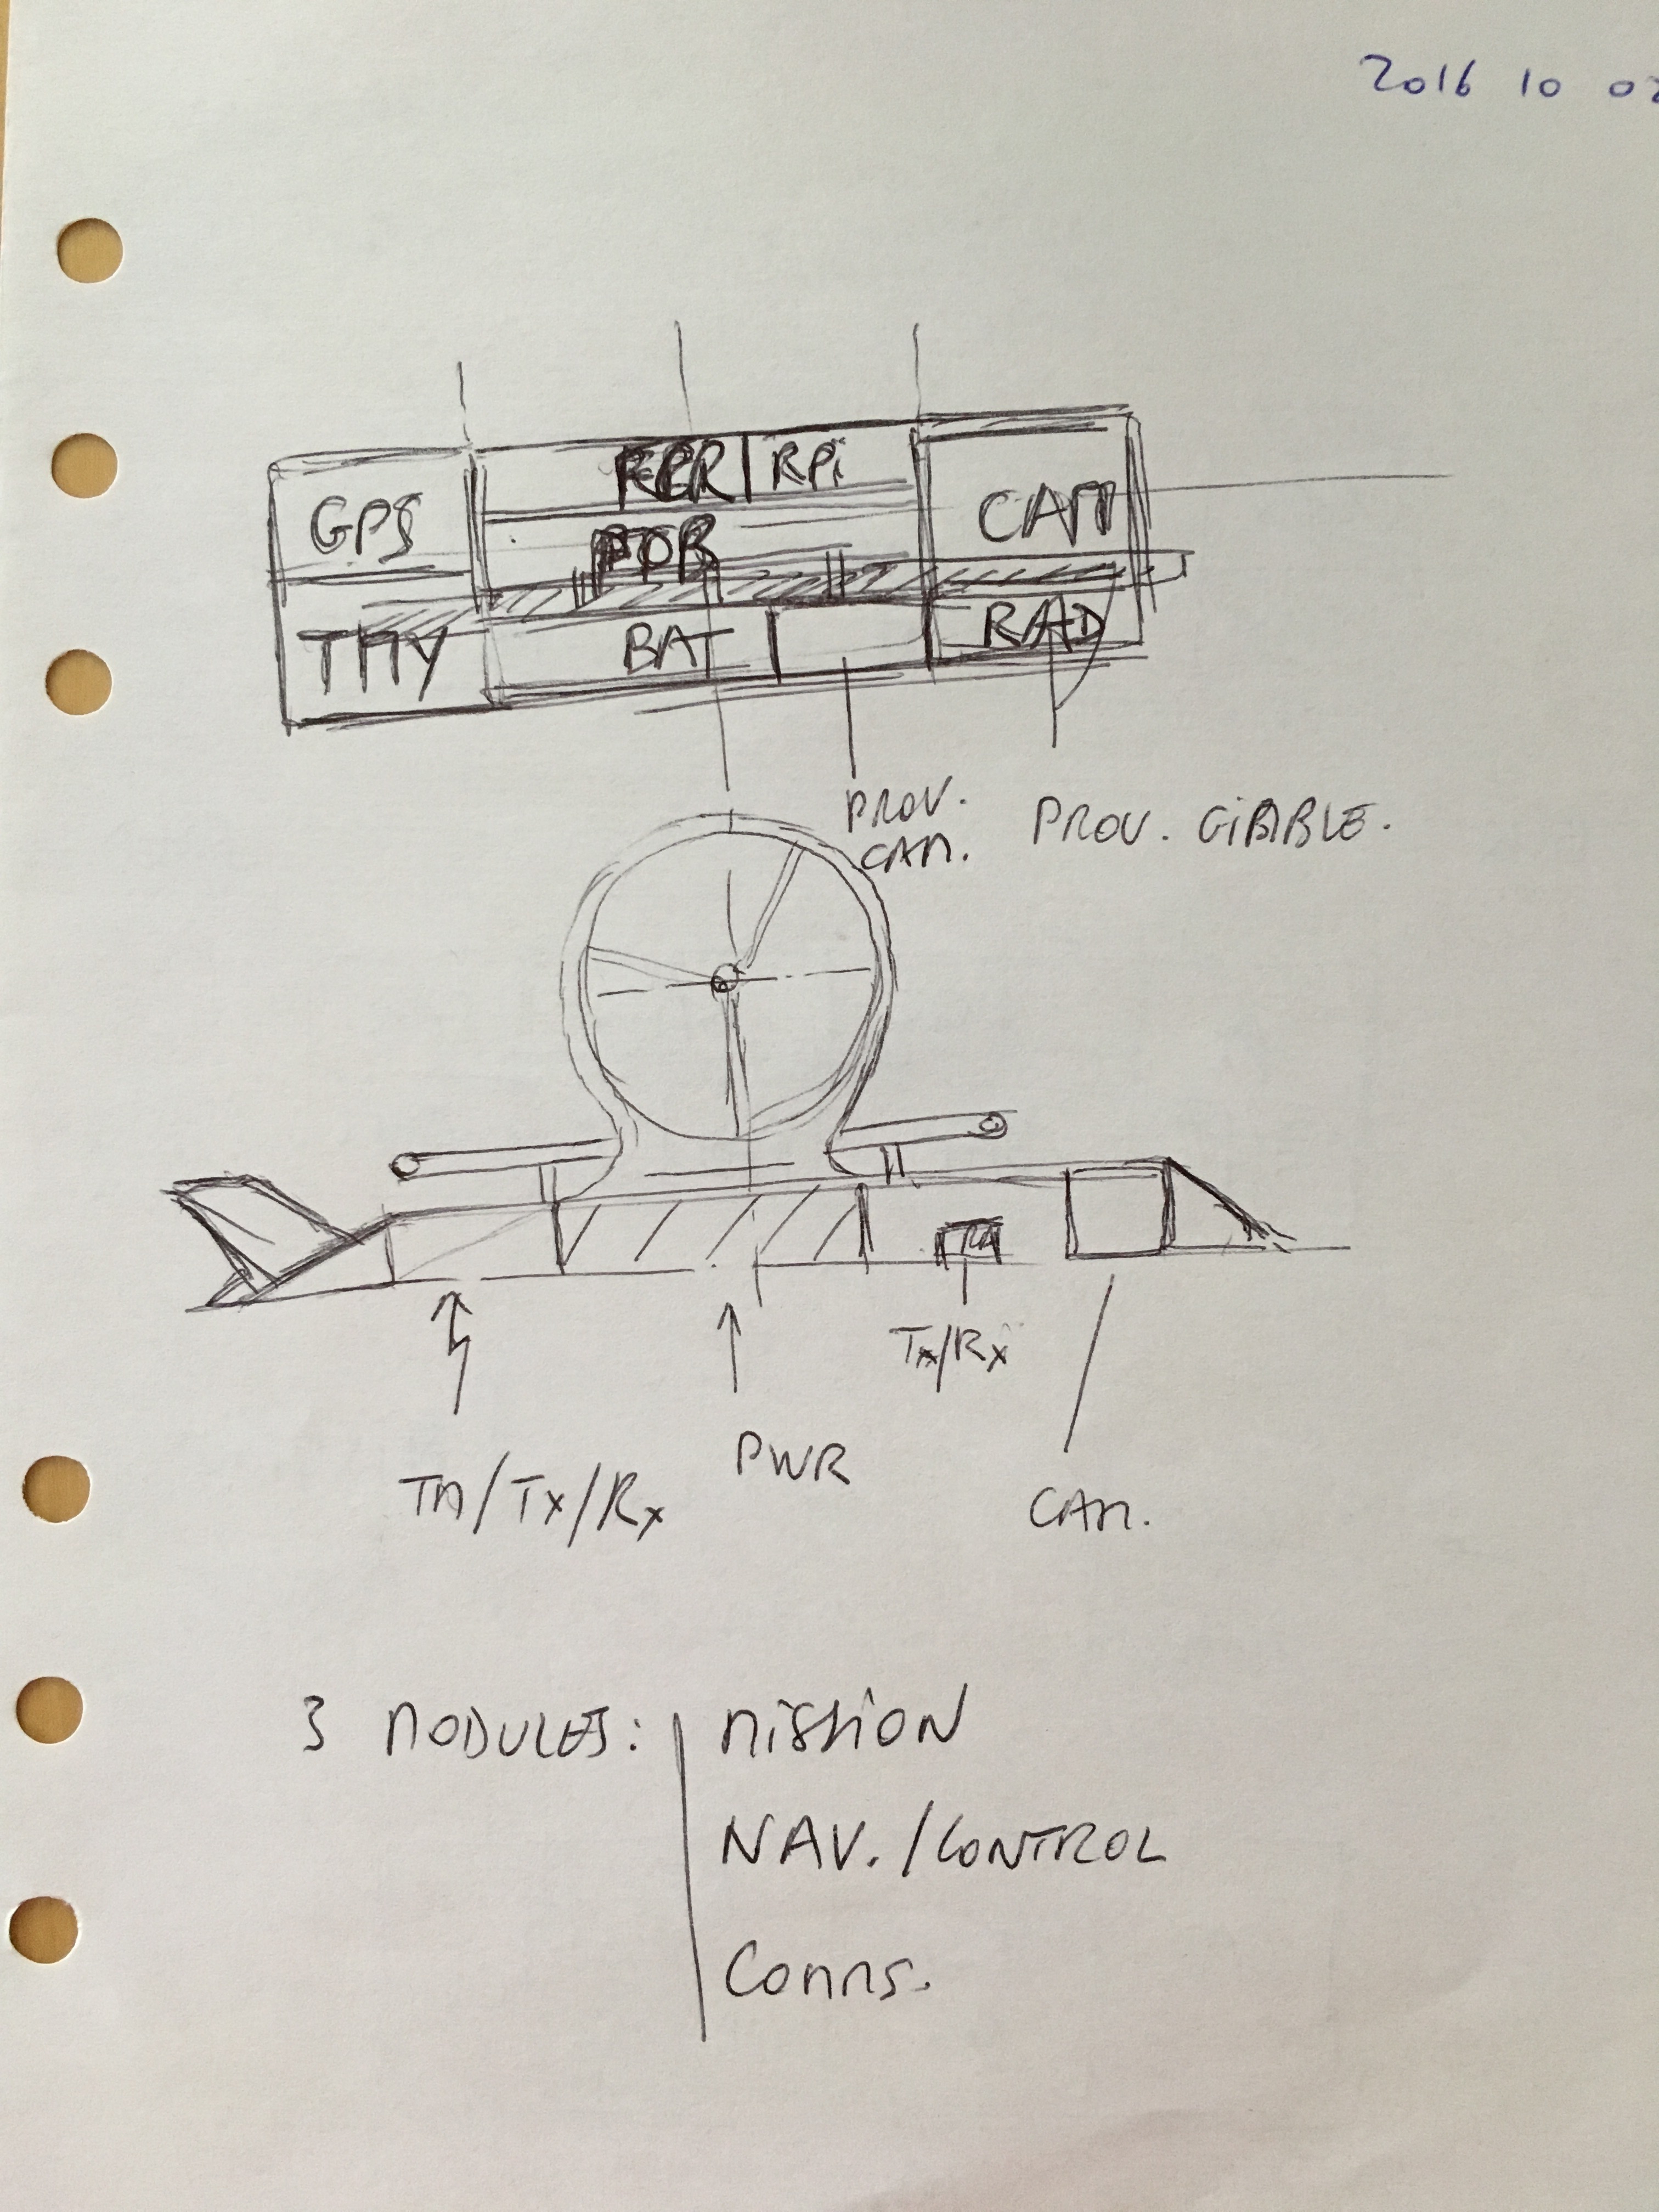 2016 10 02
RPi
GPS
CAM
PDB
TMY
BAT
RAD
PROV.
CAM.
PROV. GIBABLE.
Tx/Rx
PWR
TM/Tx/Rx
CAM.
3 MODULES:
MISSION
NAV./CONTROL
COMMS.